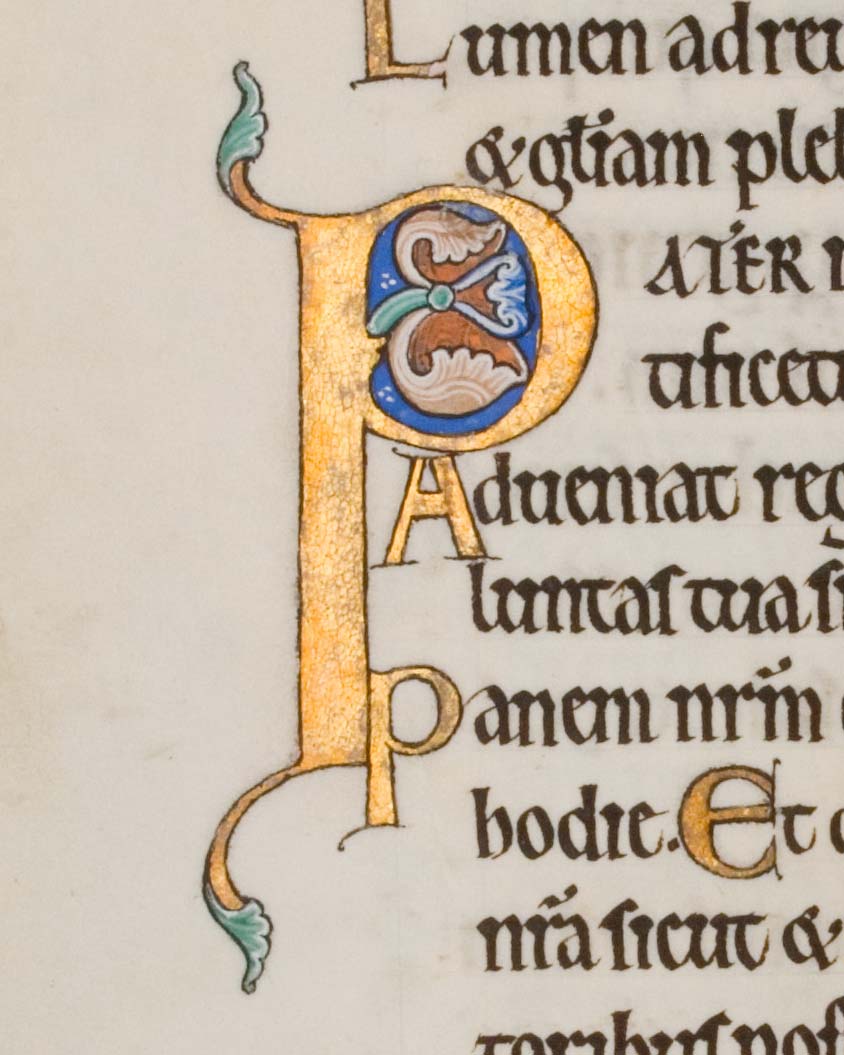 Lumen ad reu
&gl̃iam pleb
PATER n
tificetu
Adueniat reg
luntas tua si
panem nr̃m
hodie. Et
nr̃a sicut &
toribus nos